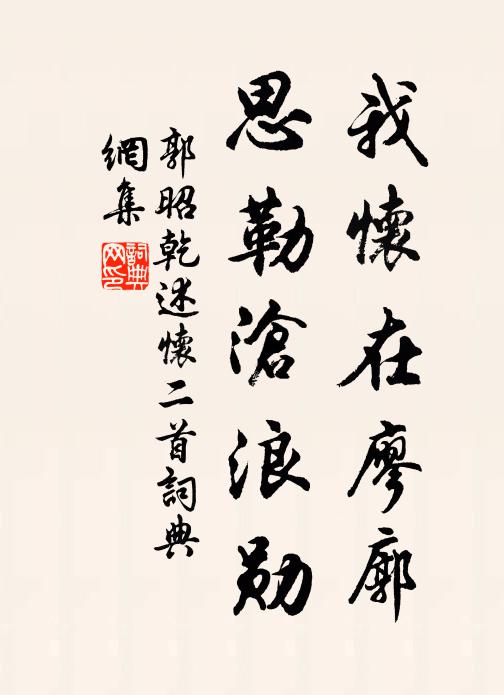 我懷在廖廓
思勒滄浪勋
郭昭乾述懷二首詞典
網集
詞典
网印